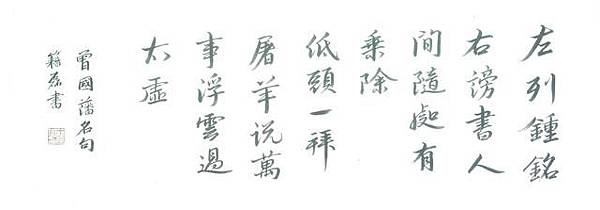 左列鍾銘
右謗書人
間隨處有
乗除
低頭一拜
屠羊说萬
事浮雲過
太虛
曾國藩名句